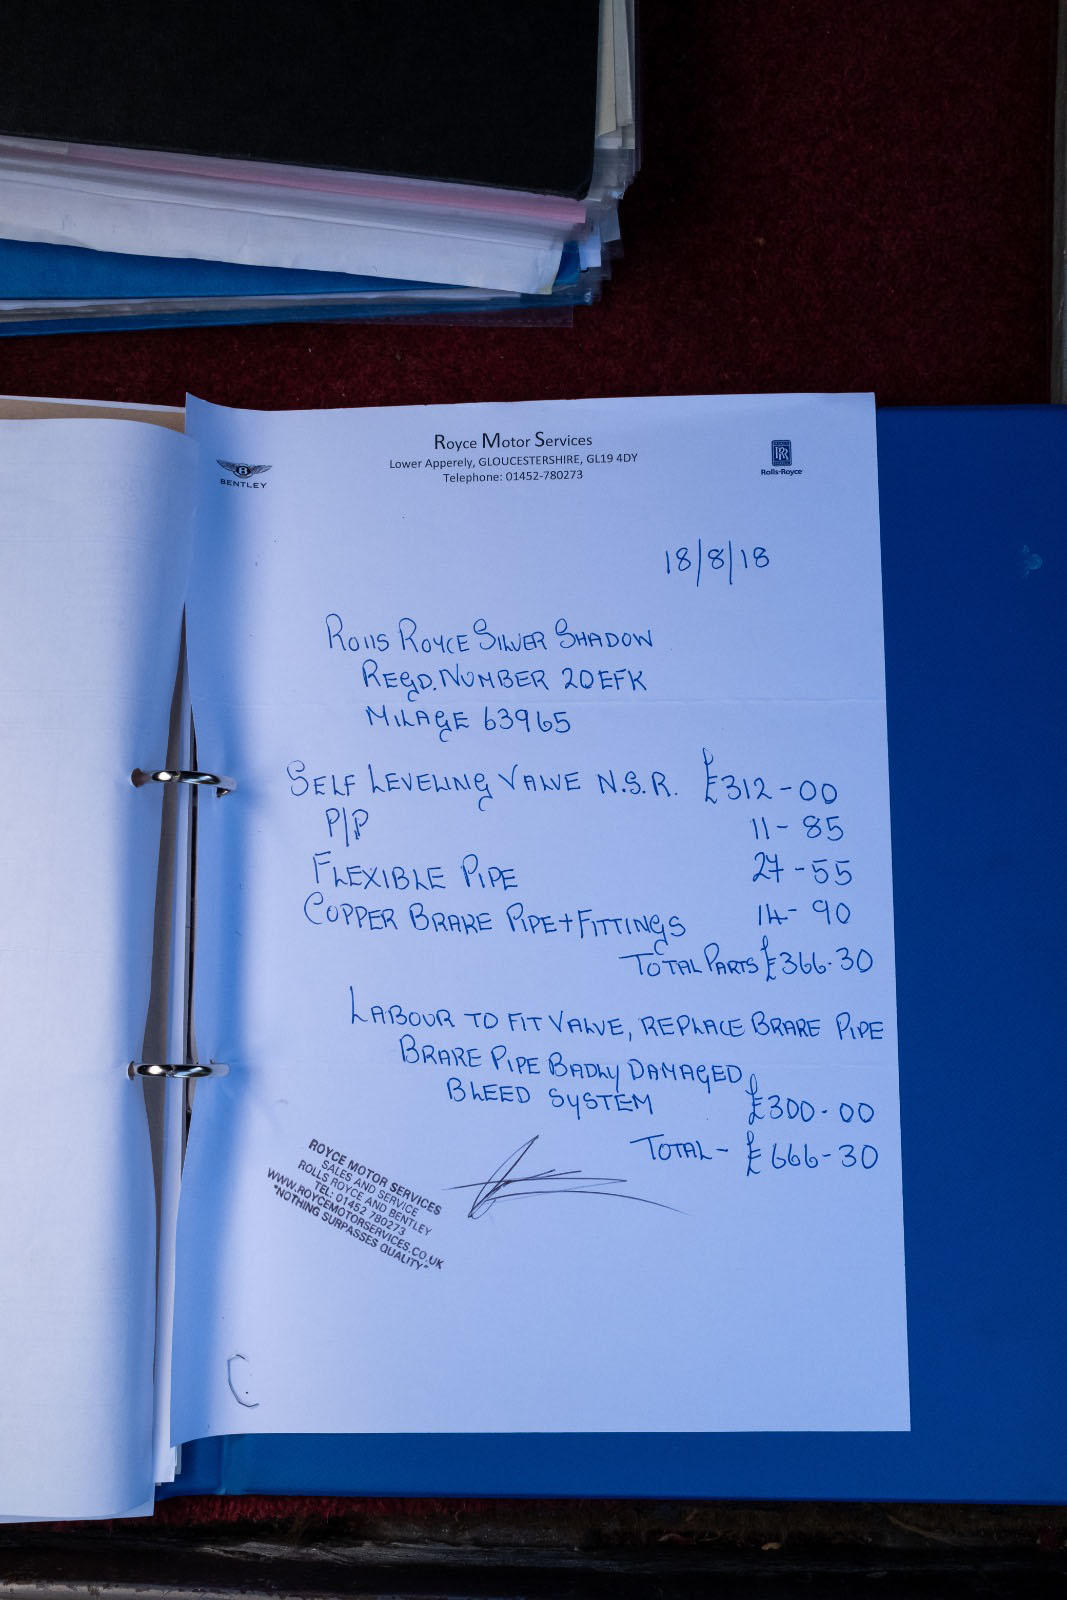 Royce Motor Services
Lower Apperely, GLOUCESTERSHIRE, GL19 4DY
Telephone: 01452-780273
B
BENTLEY
RR
Rolls-Royce
18/8/18
ROllS ROYCE SILVER SHADOW
REGD. NUMBER 20EFK
MILAGE 63965
SELF LEVELING VALVE N.S.R. £312-00
P/P 11-85
FLEXIBLE PIPE 27-55
COPPER BRAKE PIPE + FITTINGS 14-90
TOTAL PARTS £366.30
LABOUR TO FIT VALVE, REPLACE BRAKE PIPE
BRAKE PIPE BADLY DAMAGED
BLEED SYSTEM £300-00
TOTAL - £666-30
ROYCE MOTOR SERVICES
SALES AND SERVICE
ROLLS ROYCE AND BENTLEY
TEL: 01452 780273
WWW.ROYCEMOTORSERVICES.CO.UK
"NOTHING SURPASSES QUALITY"